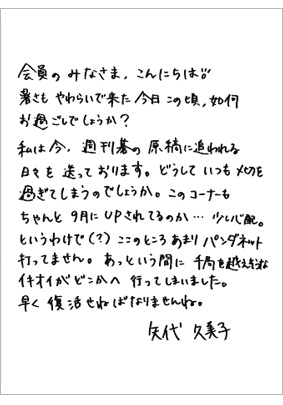 会員の みなさま、こんにちは!!
暑さも やわらいで来た 今日 この頃, 如何
お過ごしでしょうか?
私は今, 週刊碁の 原稿に追われる
日々を 送っております。どうして いつも 〆切を
過ぎてしまうのでしょうか。このコーナーも
ちゃんと 9月に UPされてるのか… 少し心配。
というわけで(?) ここのところ あまり パンダネット
打ってません。あっという間に 千局を越えそうな
イキオイがどこかへ 行ってしまいました。
早く 復活せねばなりませんね。
矢代 久美子